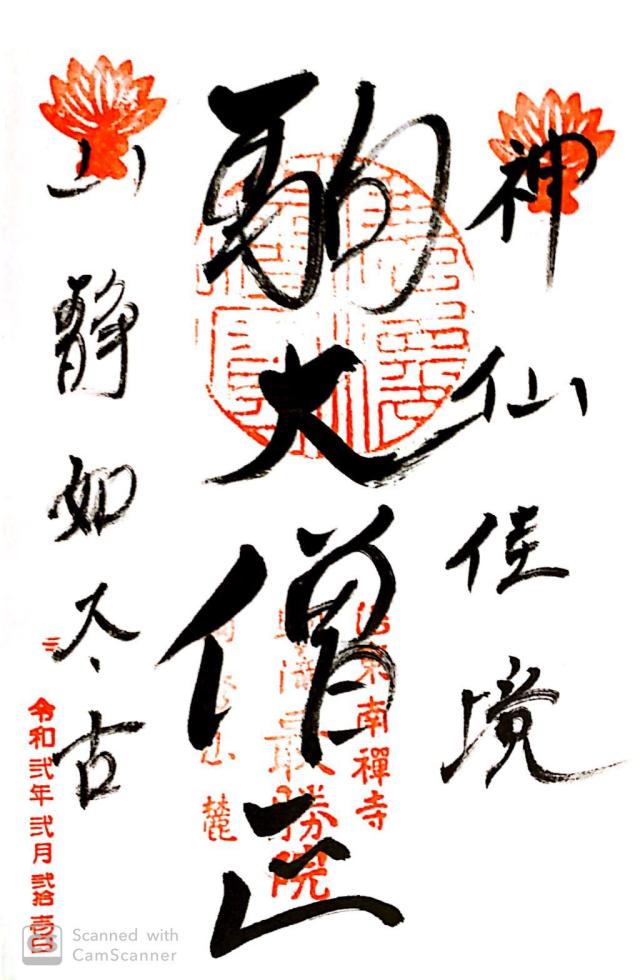 神仙佳境
駒大僧正
山静如太古
洛東南禪寺
駒瀧最勝院
麓
令和弐年弐月弐拾壱日
Scanned with
CamScanner